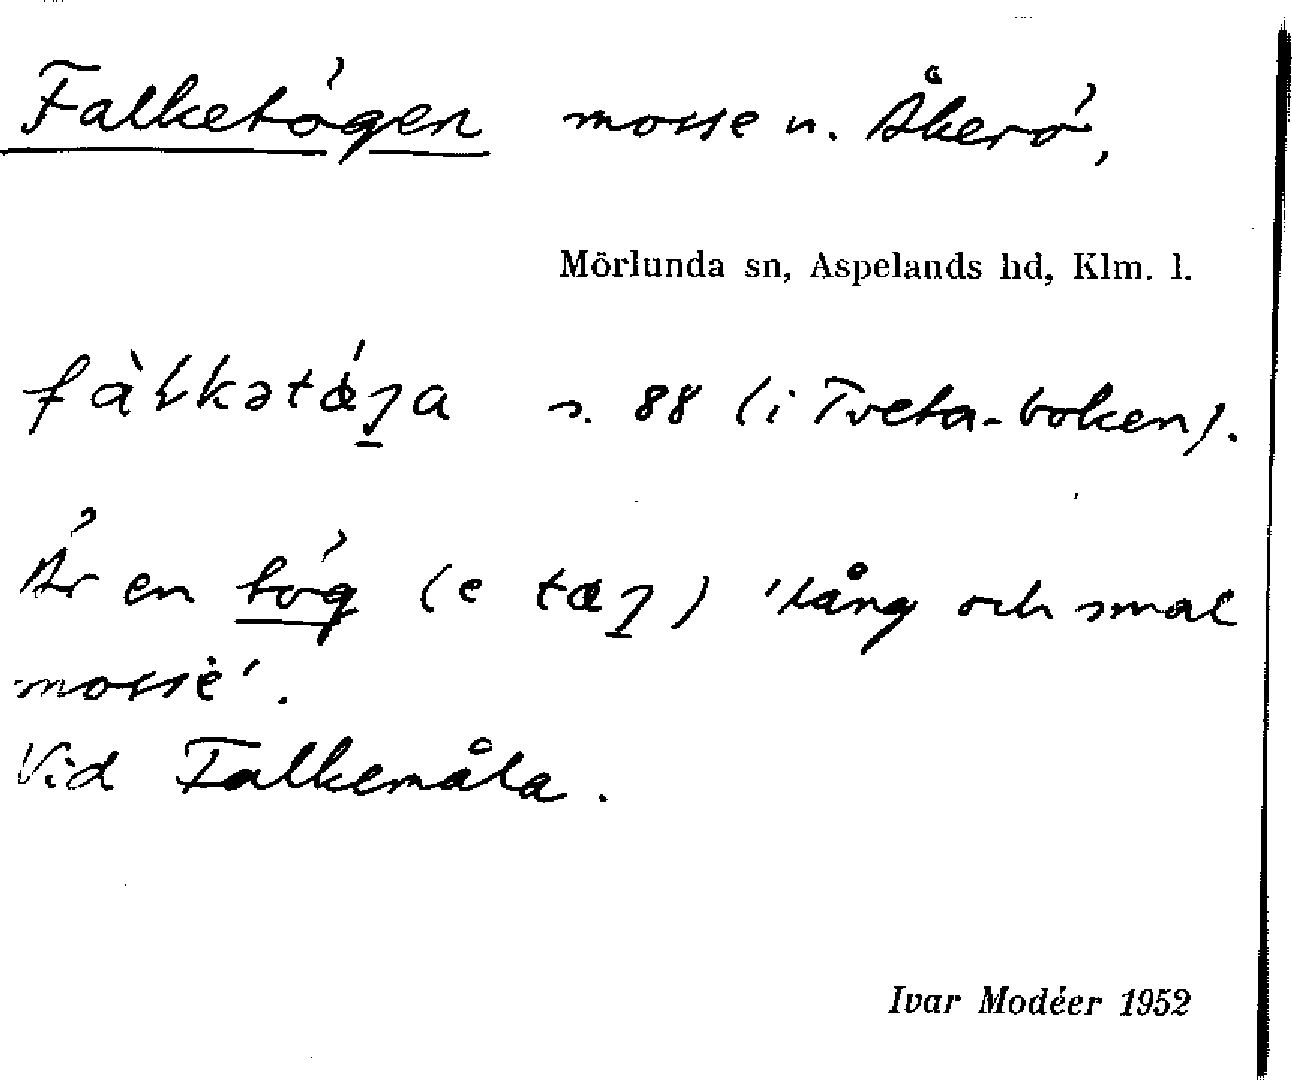 Falketögen mosse n. Åkerö,
Mörlunda sn, Aspelands hd, Klm. l.
s. 88 (i Tveta-boken).
Är en tög (e tæʒ) 'lång och smal
mosse'.
Vid Falkemåla.
Ivar Modéer 1952